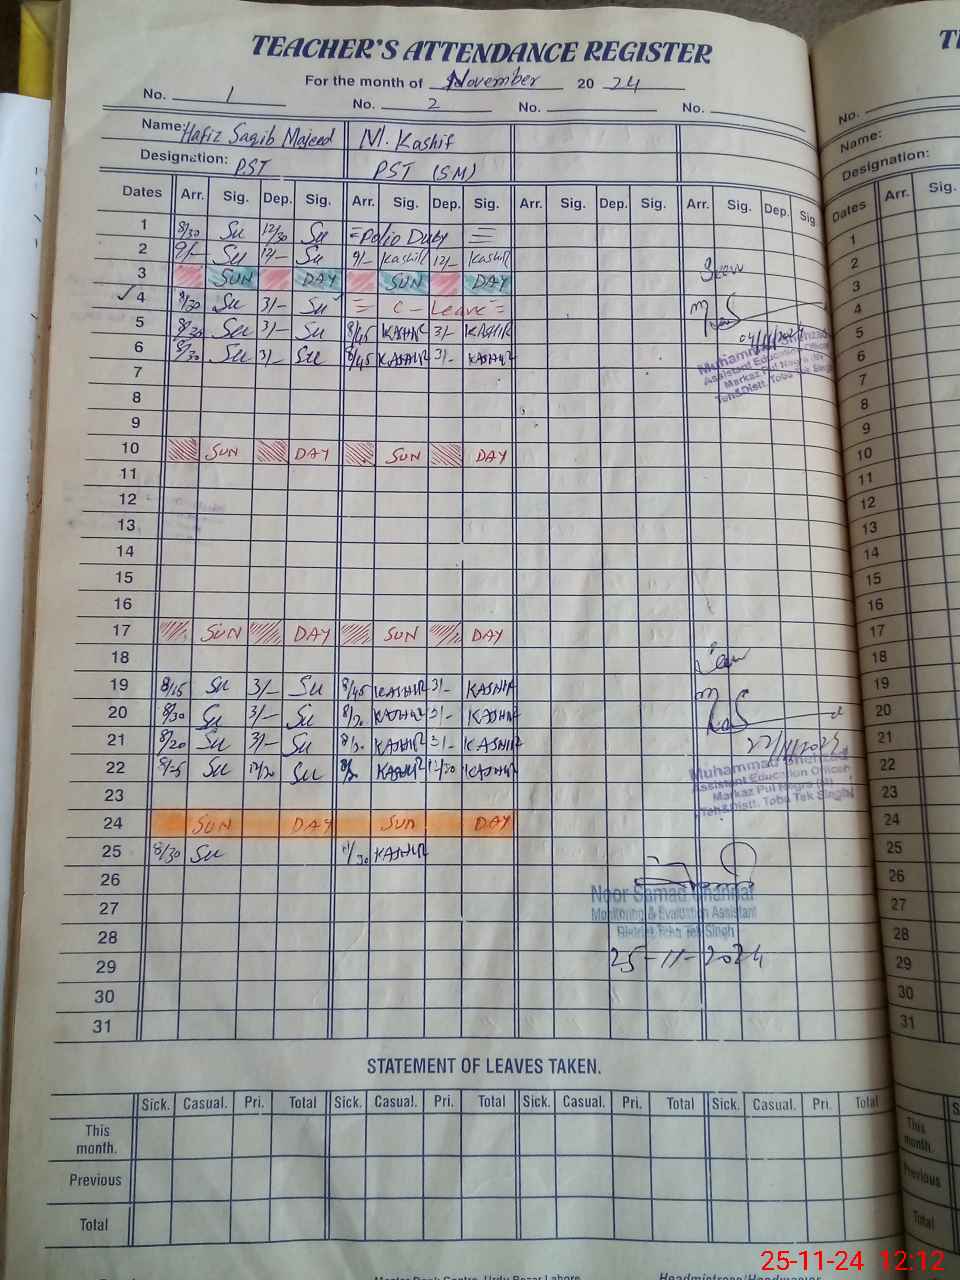 TEACHER'S ATTENDANCE REGISTER
For the month of November 2024
No. 1 No. 2 No. No.
Name: Hafiz Saqib Majeed M. Kashif
Designation: PST PST (SM)
Dates Arr. Sig. Dep. Sig. Arr. Sig. Dep. Sig. Arr. Sig. Dep. Sig. Arr. Sig. Dep. Sig.
1 8/30 Su 12/30 Su = Polio Duty =
2 9/- Su 12/- Su 9/- Kashif 12/- Kashif
3 SUN DAY SUN DAY
4 8/30 Su 3/- Su = C - Leave =
5 8/30 Su 3/- Su 8/45 KASHIF 3/- KASHIF
6 8/30 Su 3/- Su 8/45 KASHIF 3/- KASHIF
Muhammad
Assistant Education
Markaz Pul Nagra
Teh&Distt. Toba Tek Singh
7
8
9
10 SUN DAY SUN DAY
11
12
13
14
15
16
17 SUN DAY SUN DAY
18
19 8/15 Su 3/- Su 8/45 KASHIF 3/- KASHIF
20 8/30 Su 3/- Su KASHIF 3/- KASHIF
21 8/20 Su 3/- Su KASHIF 3/- KASHIF
22 Su 12/30 Su KASHIF 12/30 KASHIF
22/11/2024
Muhammad
Assistant Education Officer
Markaz Pul Nagra
Teh&Distt. Toba Tek Singh
23
24 SUN DAY SUN DAY
25 8/30 Su KASHIF
26
27
28
29
30
31
Noor Samad
Monitoring & Evaluation Assistant
District Toba Tek Singh
25-11-2024
STATEMENT OF LEAVES TAKEN.
Sick. Casual. Pri. Total Sick. Casual. Pri. Total Sick. Casual. Pri. Total Sick. Casual. Pri. Total
This month.
Previous
Total
No.
Name:
Designation:
Dates Arr. Sig.
1
2
3
4
5
6
7
8
9
10
11
12
13
14
15
16
17
18
19
20
21
22
23
24
25
26
27
28
29
30
31
This month.
Previous
Total
Urdu Bazar Lahore
Headmistress/Headmaster
25-11-24 12:12